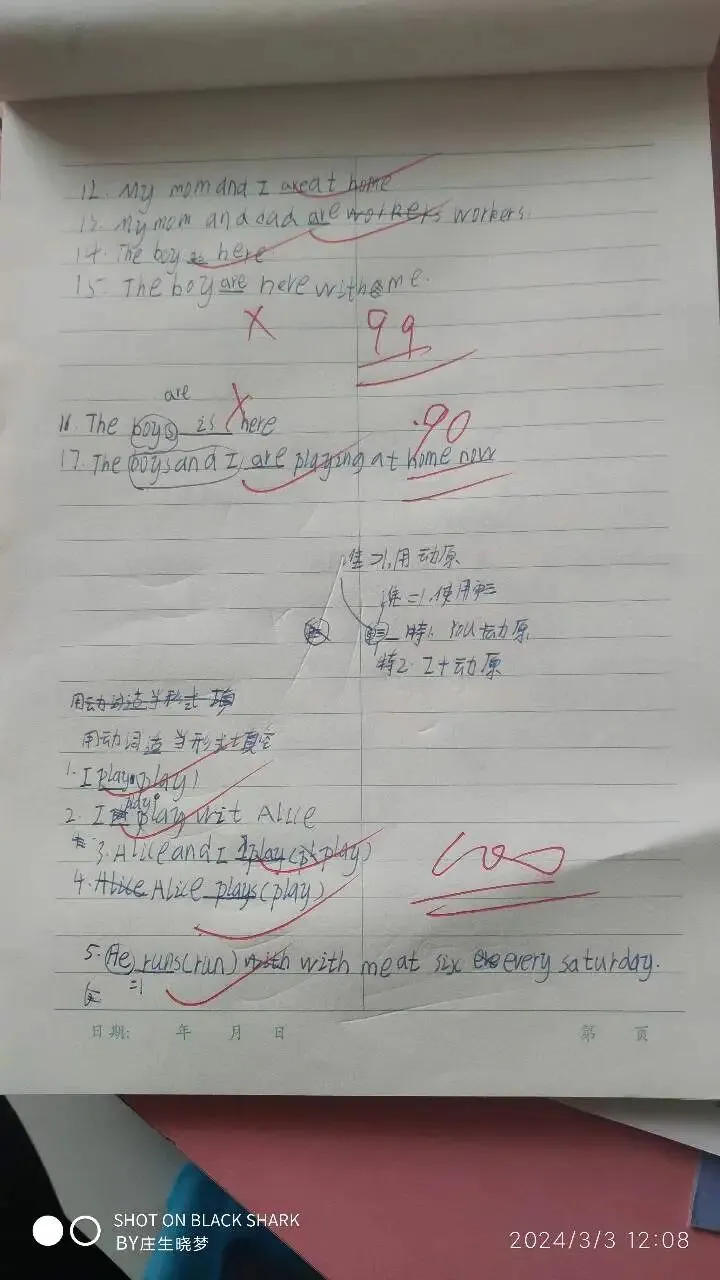 12. My mom and I are at home
13. My mom and dad are workers workers.
14. The boy is here
15. The boy are here with me.
99
are
16. The boys is here
90
17. The boys and I are playing at home now
谁>1,用动原
谁=1,使用单三
特1. you+动原
特2. I+动原
用动词适当形式填
用动词适当形式填空
1. I play(play)
play
2. I play writ Alice
3. Alice and I play(play)
100
4. Alice Alice plays(play)
5. He runs(run) with with me at six every saturday.
=1
日期: 年 月 日 第 页
SHOT ON BLACK SHARK
BY庄生晓梦
2024/3/3 12:08